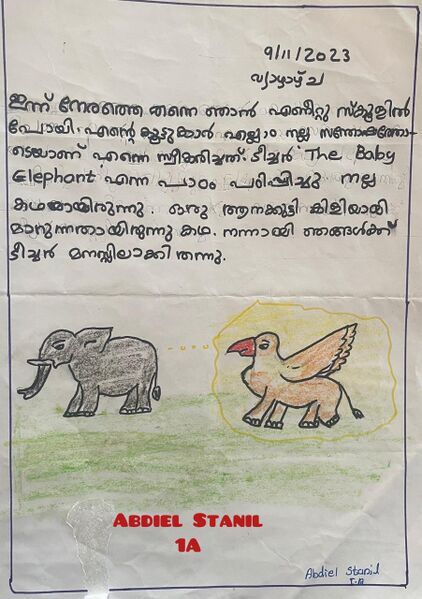 9/11/2023
വ്യാഴാഴ്ച
ഇന്ന് നേരത്തെ തന്നെ ഞാൻ എണീറ്റു സ്കൂളിൽ
പോയി. എൻ്റെ കൂട്ടുകാർ എല്ലാം നല്ല സന്തോഷത്തോ-
ടെയാണ് എന്നെ സ്വീകരിച്ചത്. ടീച്ചർ 'The Baby
Elephant' എന്ന പാഠം പഠിപ്പിച്ചു നല്ല
കഥയായിരുന്നു. ഒരു ആനക്കുട്ടി കിളിയായി
മാറുന്നതായിരുന്നു കഥ. നന്നായി ഞങ്ങൾക്ക്
ടീച്ചർ മനസ്സിലാക്കി തന്നു.
ABDIEL STANIL
1A
Abdiel Stanil
I-A